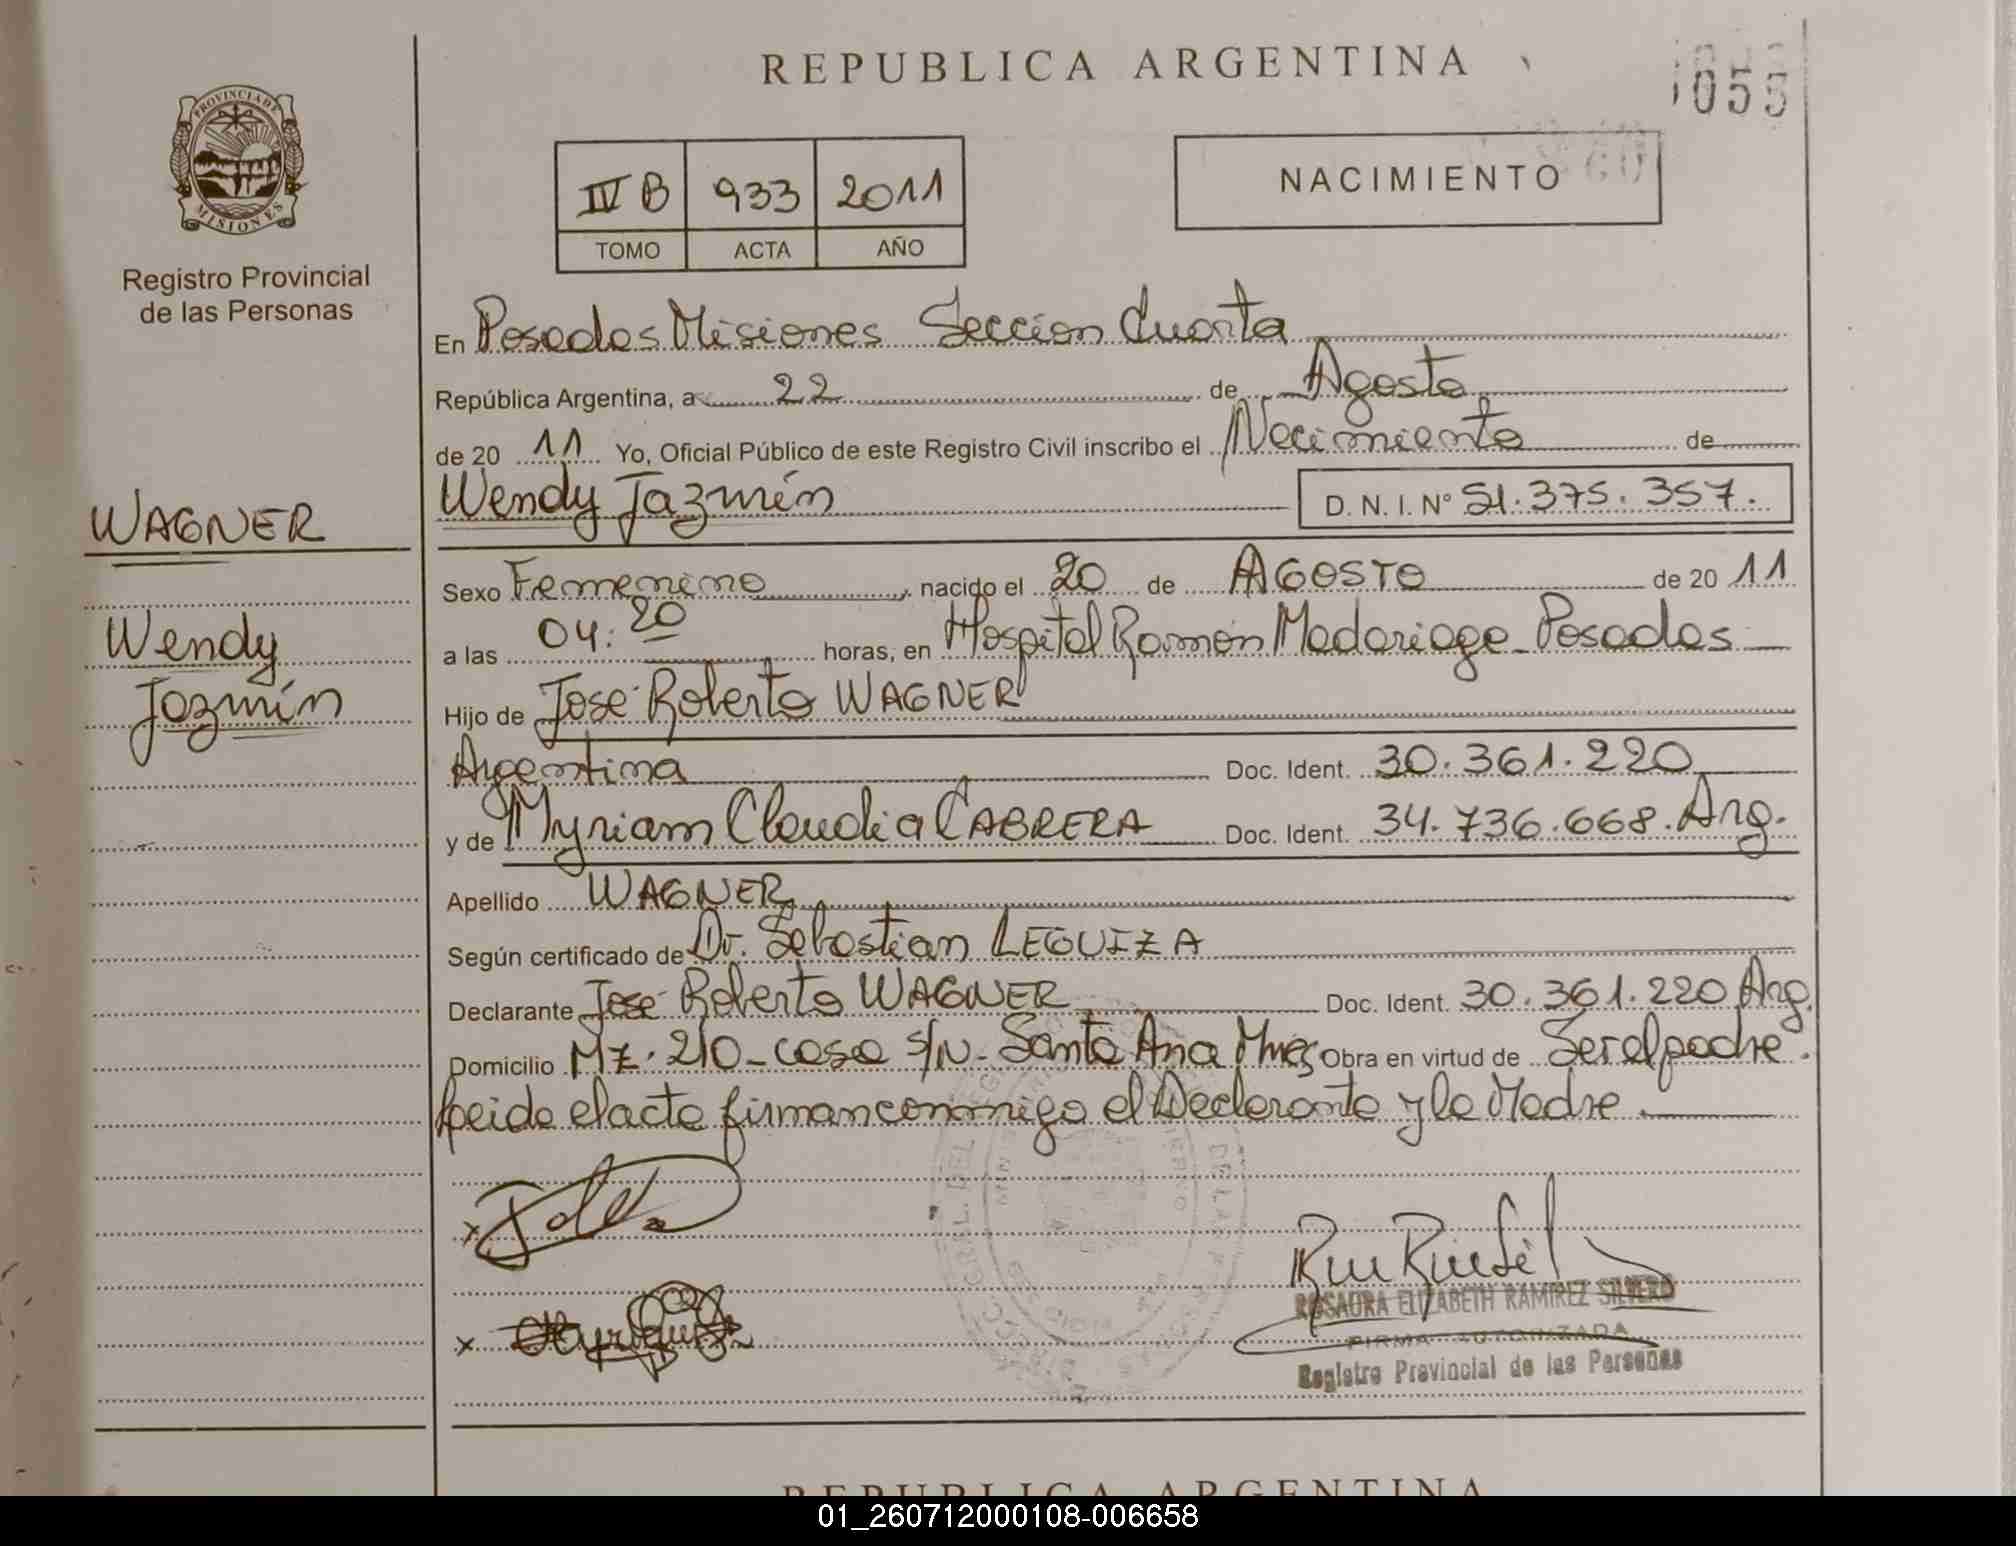 REPUBLICA ARGENTINA
055
PROVINCIA DE
MISIONES
Registro Provincial
de las Personas
IV B 933 2011
TOMO ACTA AÑO
NACIMIENTO
En Posadas Misiones Seccion Cuarta
República Argentina, a 22 de Agosto
de 20 11 Yo, Oficial Público de este Registro Civil inscribo el Nacimiento de
WAGNER
Wendy Jazmín
Wendy Jazmín D. N. I. N° 51.375.357.
Sexo Femenino, nacido el 20 de AGOSTO de 20 11
a las 04:20 horas, en Hospital Ramón Madariaga - Posadas
Hijo de José Roberto WAGNER
Argentina Doc. Ident. 30.361.220
y de Myriam Claudia CABRERA Doc. Ident. 34.736.668. Arg.
Apellido WAGNER
Según certificado de Dr. Sebastian LEGUIZA
Declarante José Roberto WAGNER Doc. Ident. 30.361.220 Arg.
Domicilio Mz. 210 - casa s/N - Santa Ana Mnes Obra en virtud de Ser el padre.
Leida el acta firman conmigo el Declarante y la Madre.
x
x
ROSAURA ELIZABETH RAMIREZ SILVERO
FIRMA AUTORIZADA
Registro Provincial de las Personas
REPUBLICA ARGENTINA
01_260712000108-006658